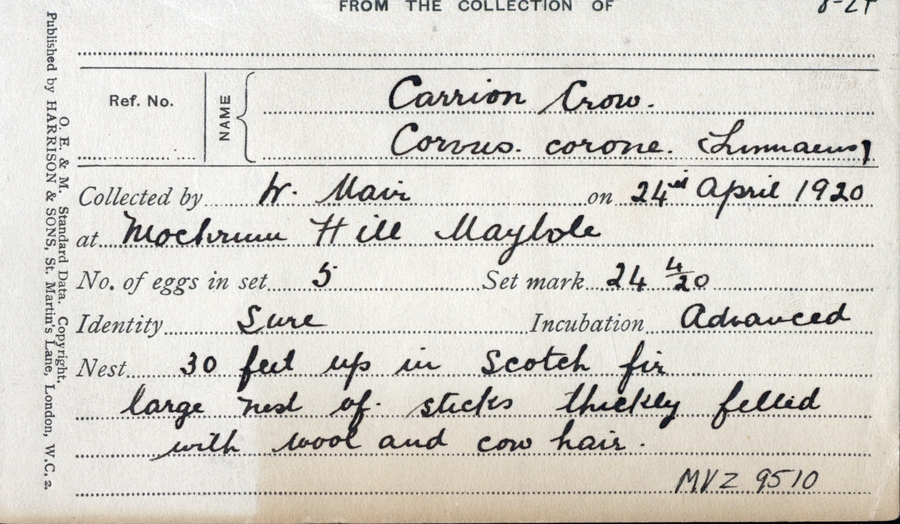 FROM THE COLLECTION OF
Ref. No.
NAME
Carrion Crow.
Corvus. corone. (Linnaeus)
Collected by W. Mair on 24th April 1920
at Mochrum Hill Maybole
No. of eggs in set 5 Set mark 24 4/20
Identity Sure Incubation Advanced
Nest 30 feet up in Scotch fir
large nest of sticks thickly felled
with wool and cow hair.
MVZ 9510
O. E. & M. Standard Data. Copyright.
Published by HARRISON & SONS, St. Martin's Lane, London, W.C. 2.